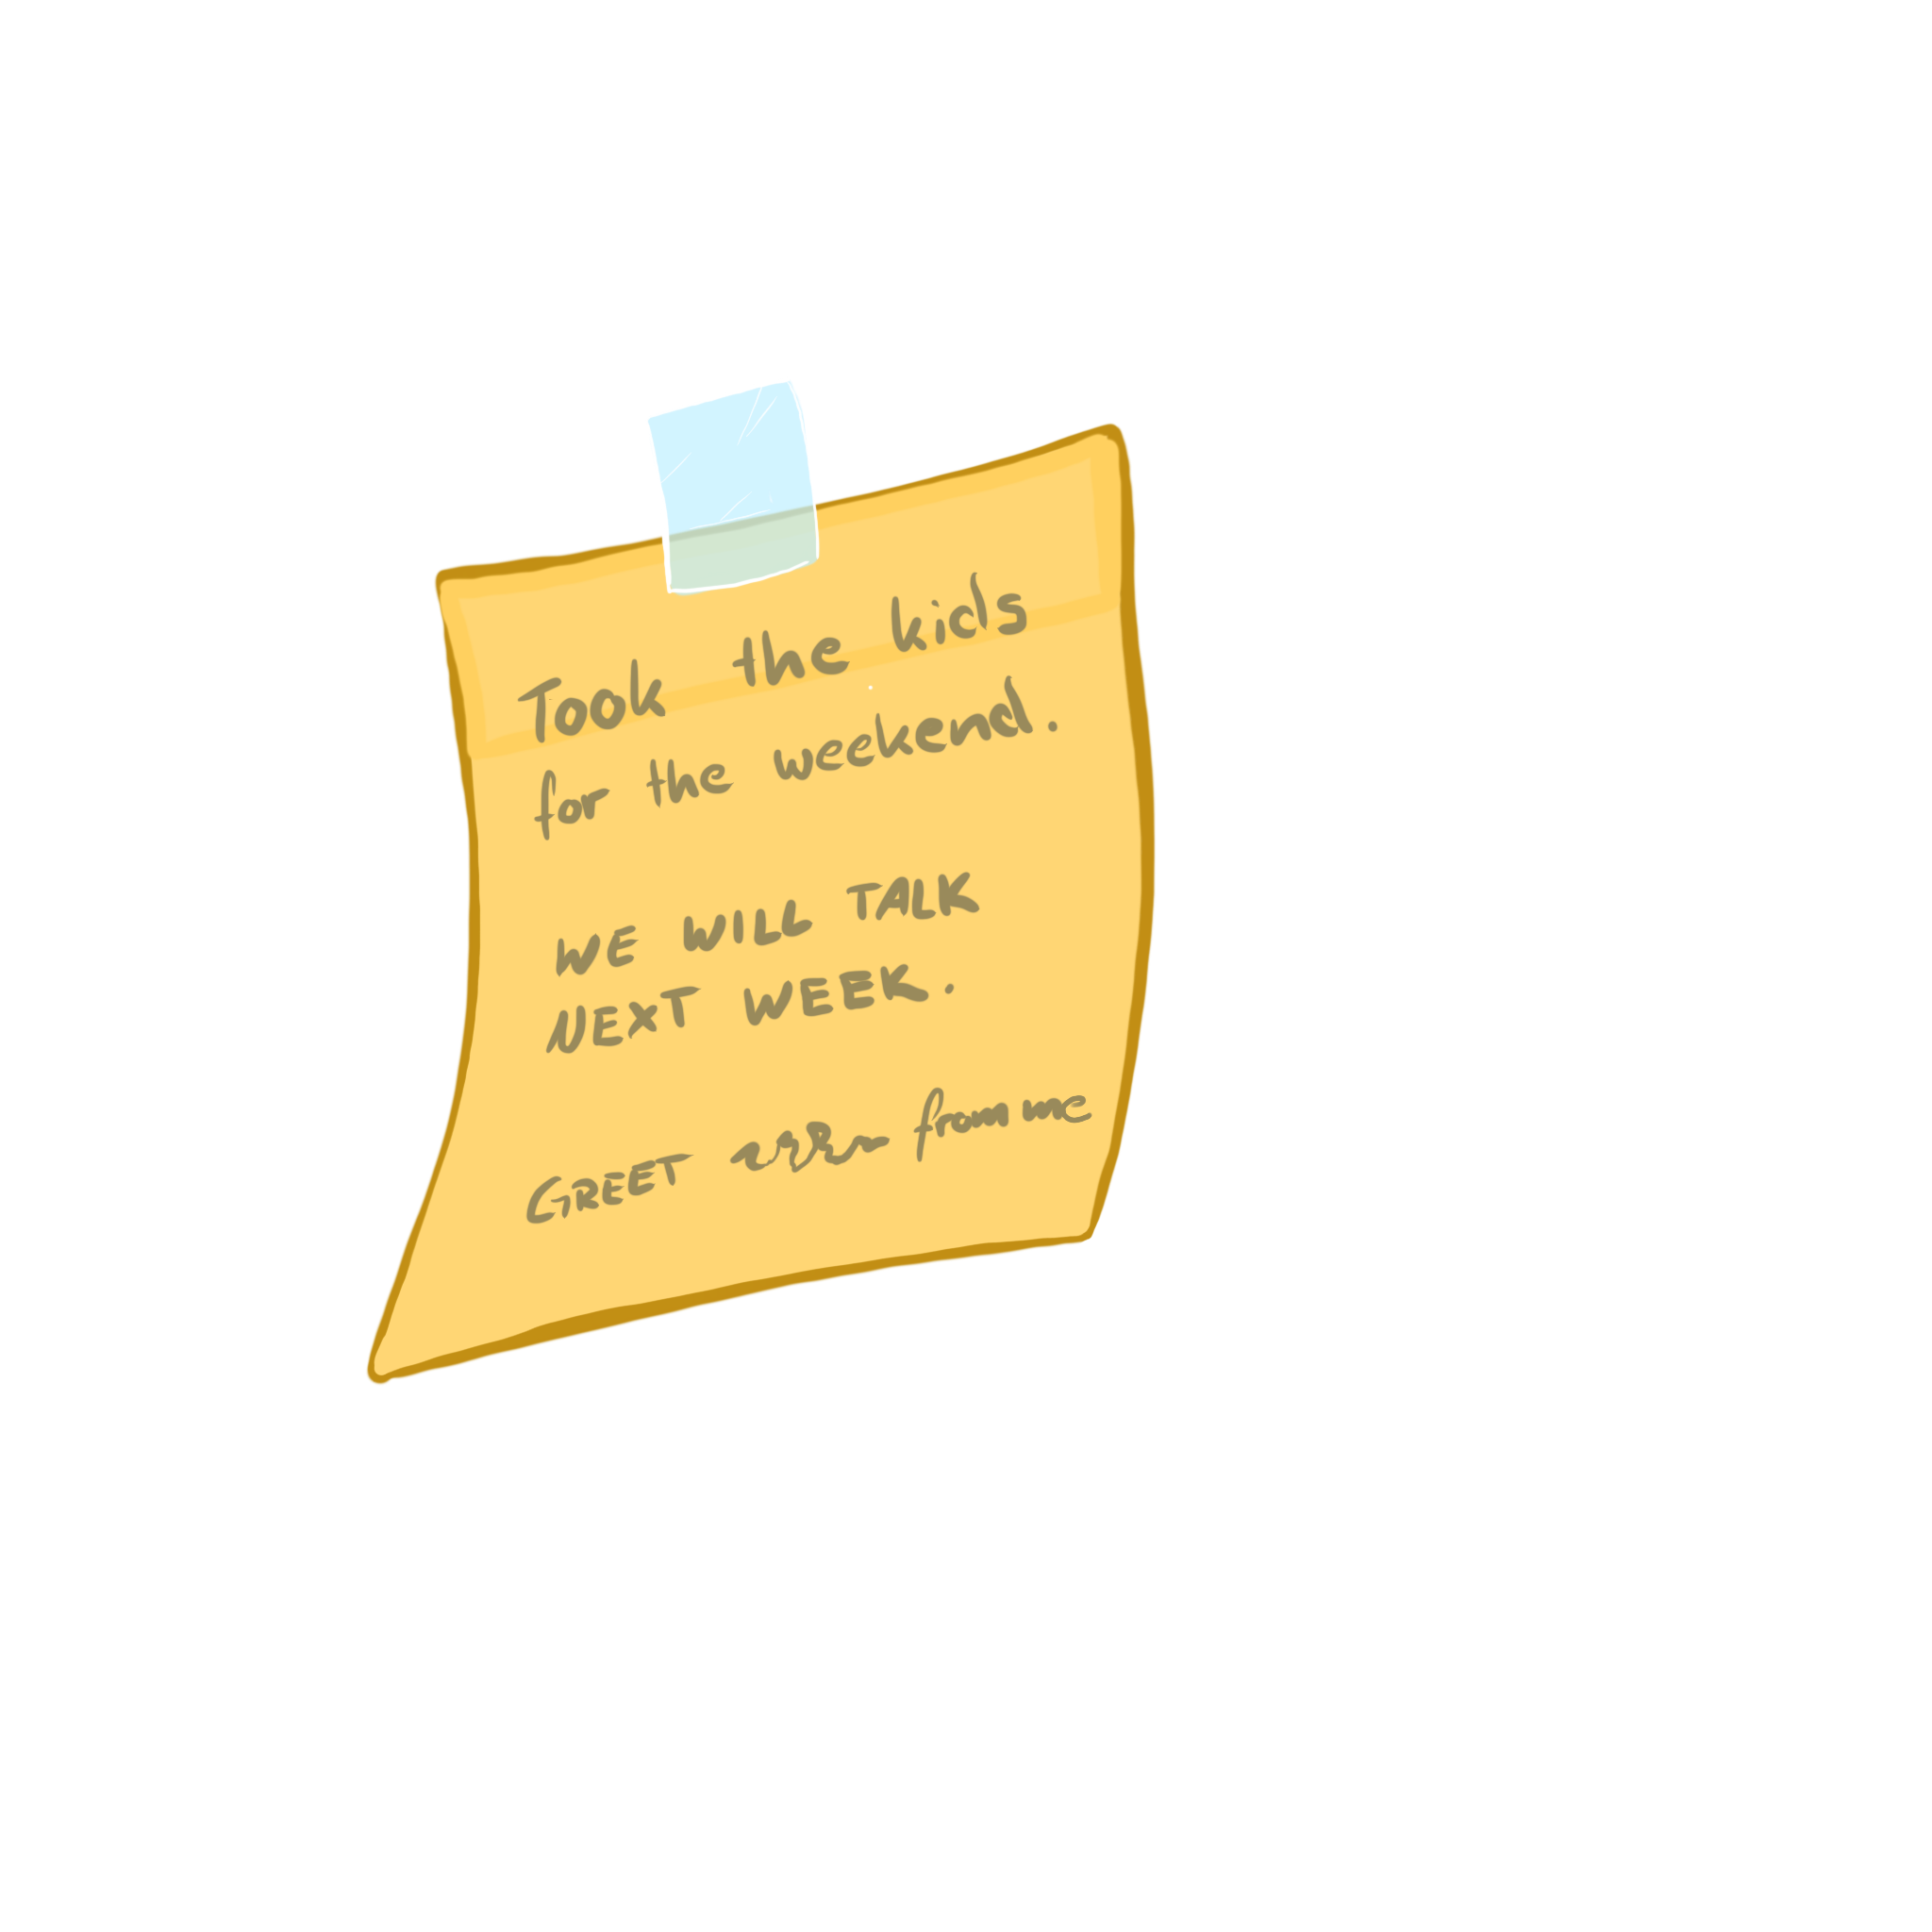 Took the kids
for the weekend.
WE WILL TALK
NEXT WEEK.
GREET from me